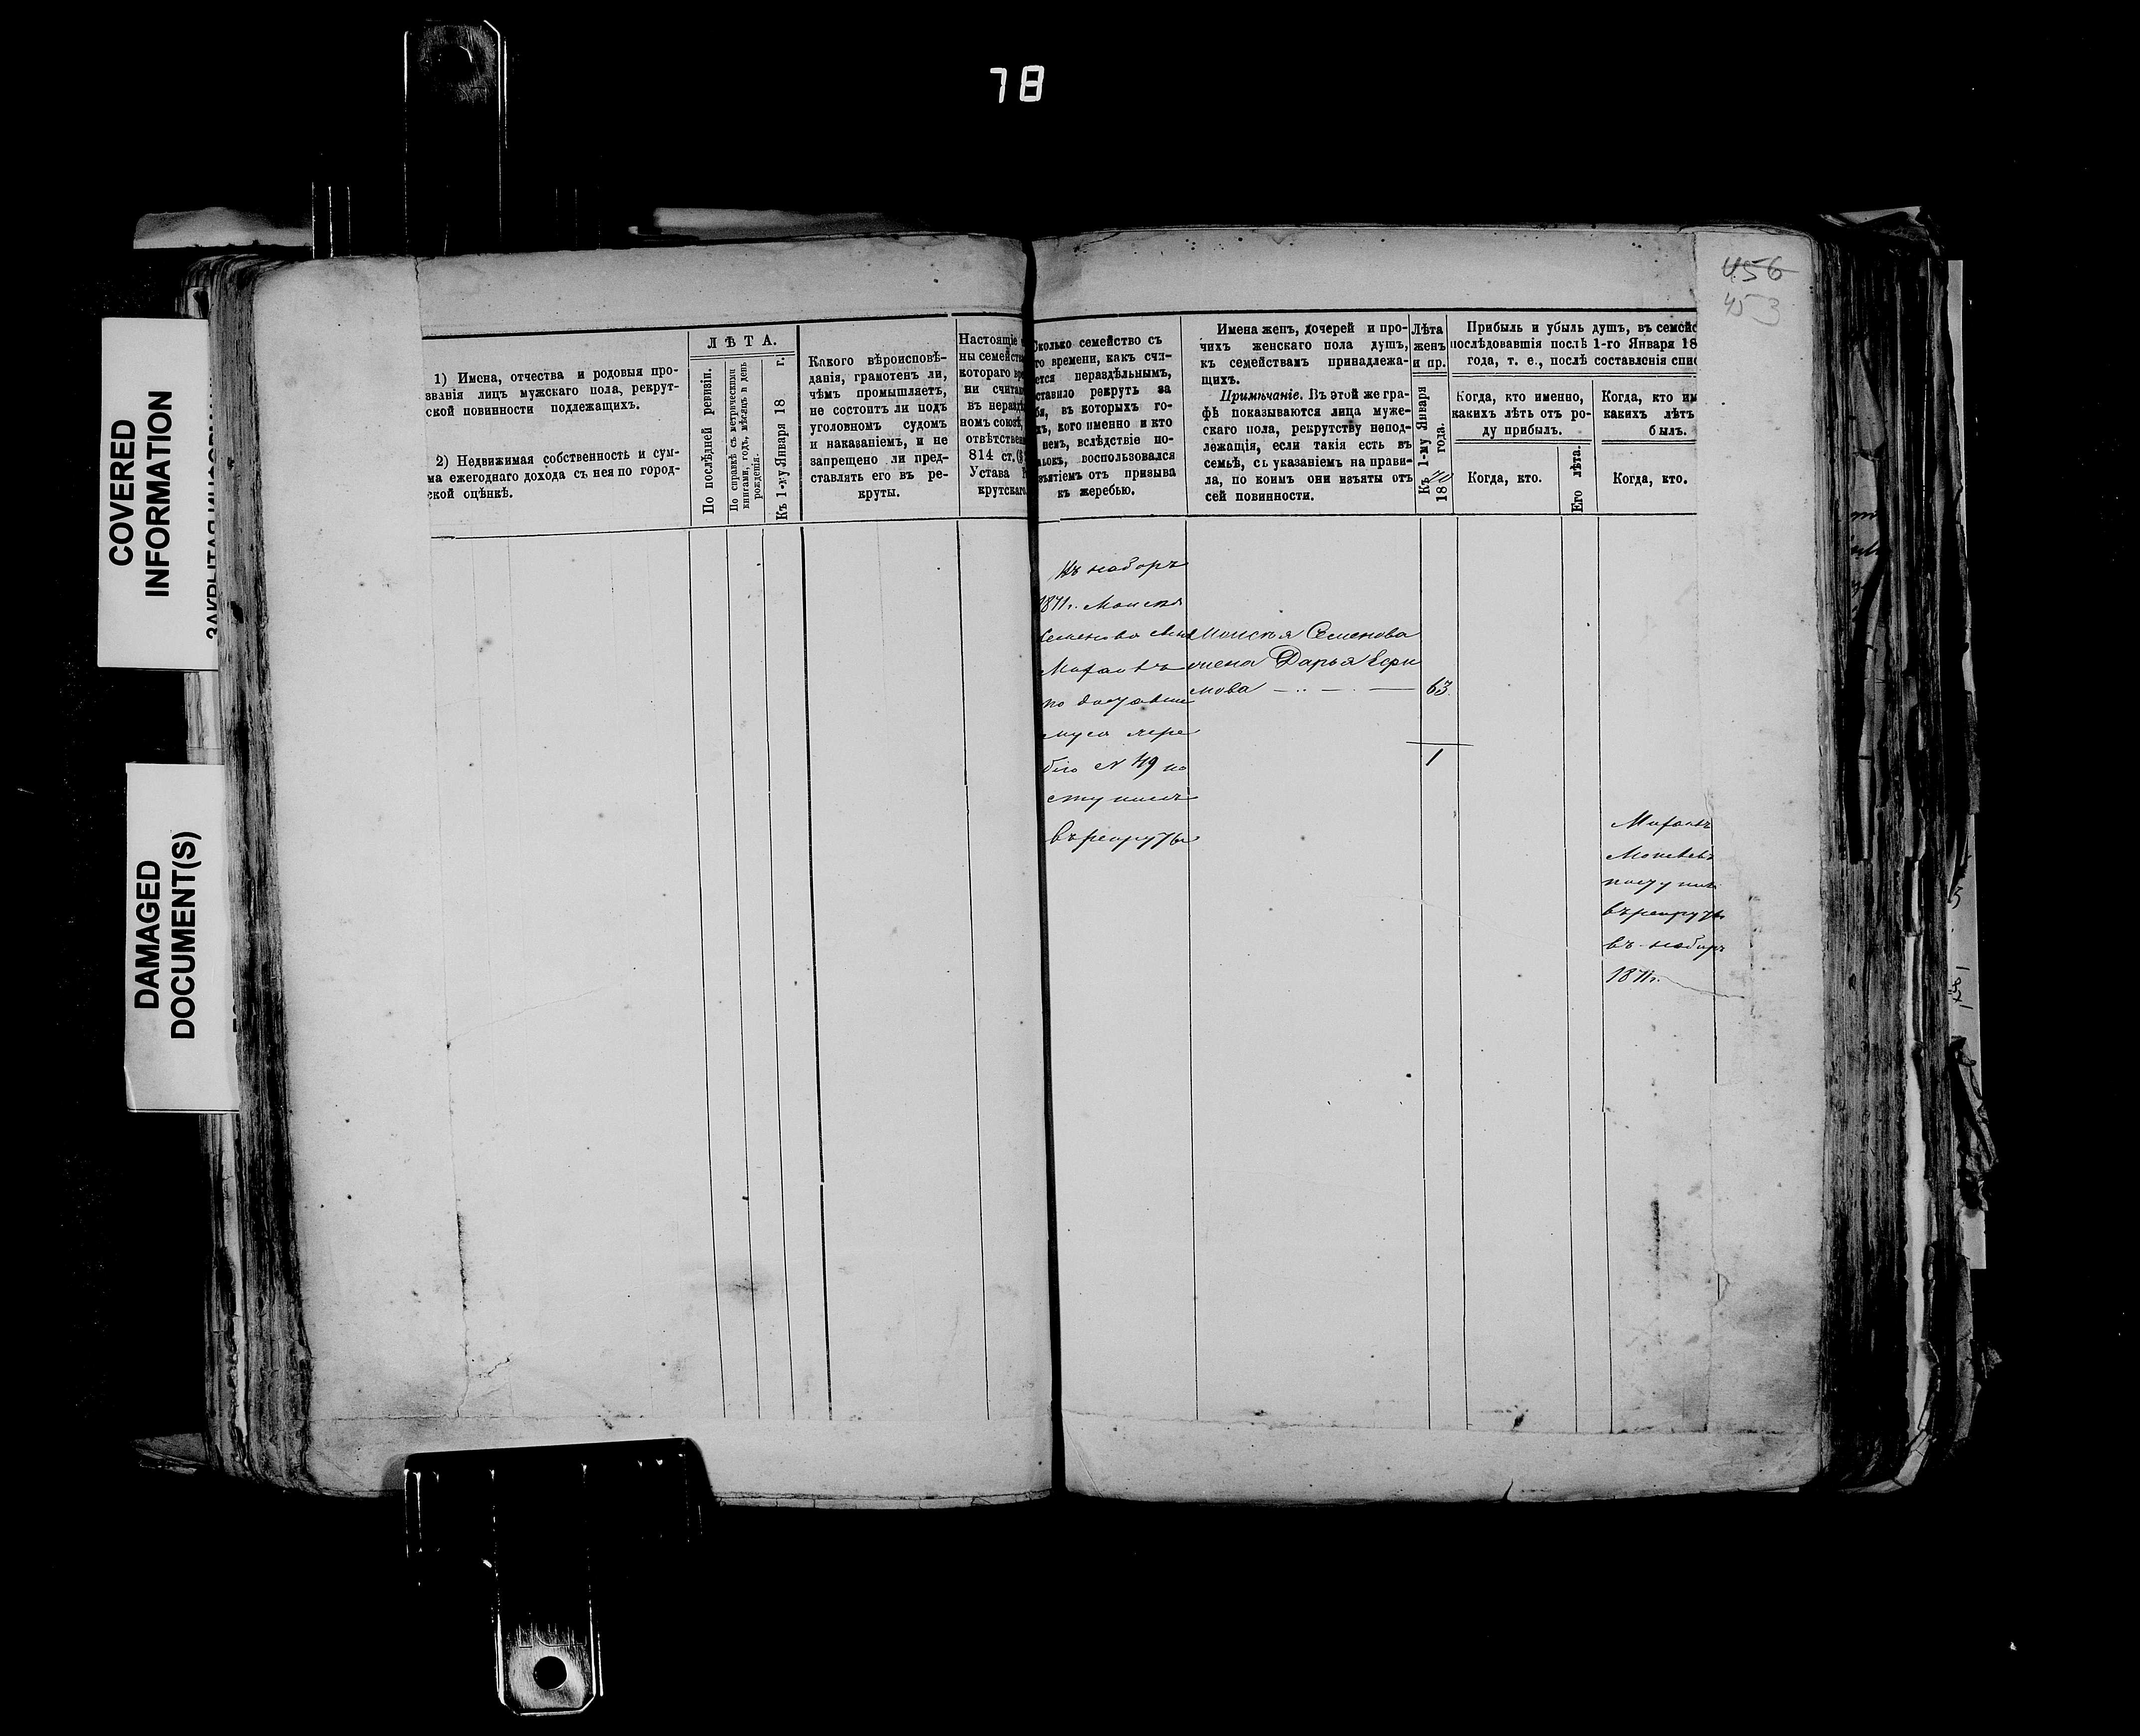 78
COVERED
INFORMATION
DAMAGED
DOCUMENT(S)
456
453
1) Имена, отчества и родовыя про-
званія лицъ мужскаго пола, рекрут-
ской повинности подлежащихъ.
2) Недвижимая собственность и сум-
ма ежегоднаго дохода съ нея по город-
ской оцѣнкѣ.
ЛѢТА.
По послѣдней ревизіи.
По справкѣ съ метрическими
книгами, годъ, мѣсяцъ и день
рожденія.
Къ 1-му Января 18 г.
Какого вѣроисповѣ-
данія, грамотенъ ли,
чѣмъ промышляетъ,
не состоитъ ли подъ
уголовномъ судомъ
и наказаніемъ, и не
запрещено ли пред-
ставлять его въ ре-
круты.
Настоящіе
ны семейств
котораго вре
ни считае
въ нераздѣ
номъ союзѣ,
отвѣтствен
814 ст.
Устава
крутскаго
Сколько семейство съ
го времени, какъ счи-
ется нераздѣльнымъ,
ставило рекрутъ за
бя, въ которыхъ го-
хъ, кого именно и кто
немъ, вслѣдствіе по-
ылокъ, воспользовался
зъятіемъ отъ призыва
къ жеребью.
Имена женъ, дочерей и про-
чихъ женскаго пола душъ,
къ семействамъ принадлежа-
щихъ.
Примѣчаніе. Въ этой же гра-
фѣ показываются лица муже-
скаго пола, рекрутству непод-
лежащія, если такія есть въ
семьѣ, съ указаніемъ на прави-
ла, по коимъ они изъяты отъ
сей повинности.
Лѣта
женъ
и пр.
Къ 1-му Января
18 70 года.
Прибыль и убыль душъ, въ семейс
послѣдовавшія послѣ 1-го Января 18
года, т. е., послѣ составленія спис
Когда, кто именно,
какихъ лѣтъ отъ ро-
ду прибылъ.
Когда, кто.
Его лѣта.
Когда, кто им
какихъ лѣтъ
былъ.
Когда, кто.
Въ наборъ
1871г. Моисея
Семенова
по доставше
муся жере
бію № 49 по
ступилъ
въ рекруты
Моисея Семенова
жена Дарья Ефи
мова — 63.
1
поступил
въ рекруты
въ наборъ
1871г.